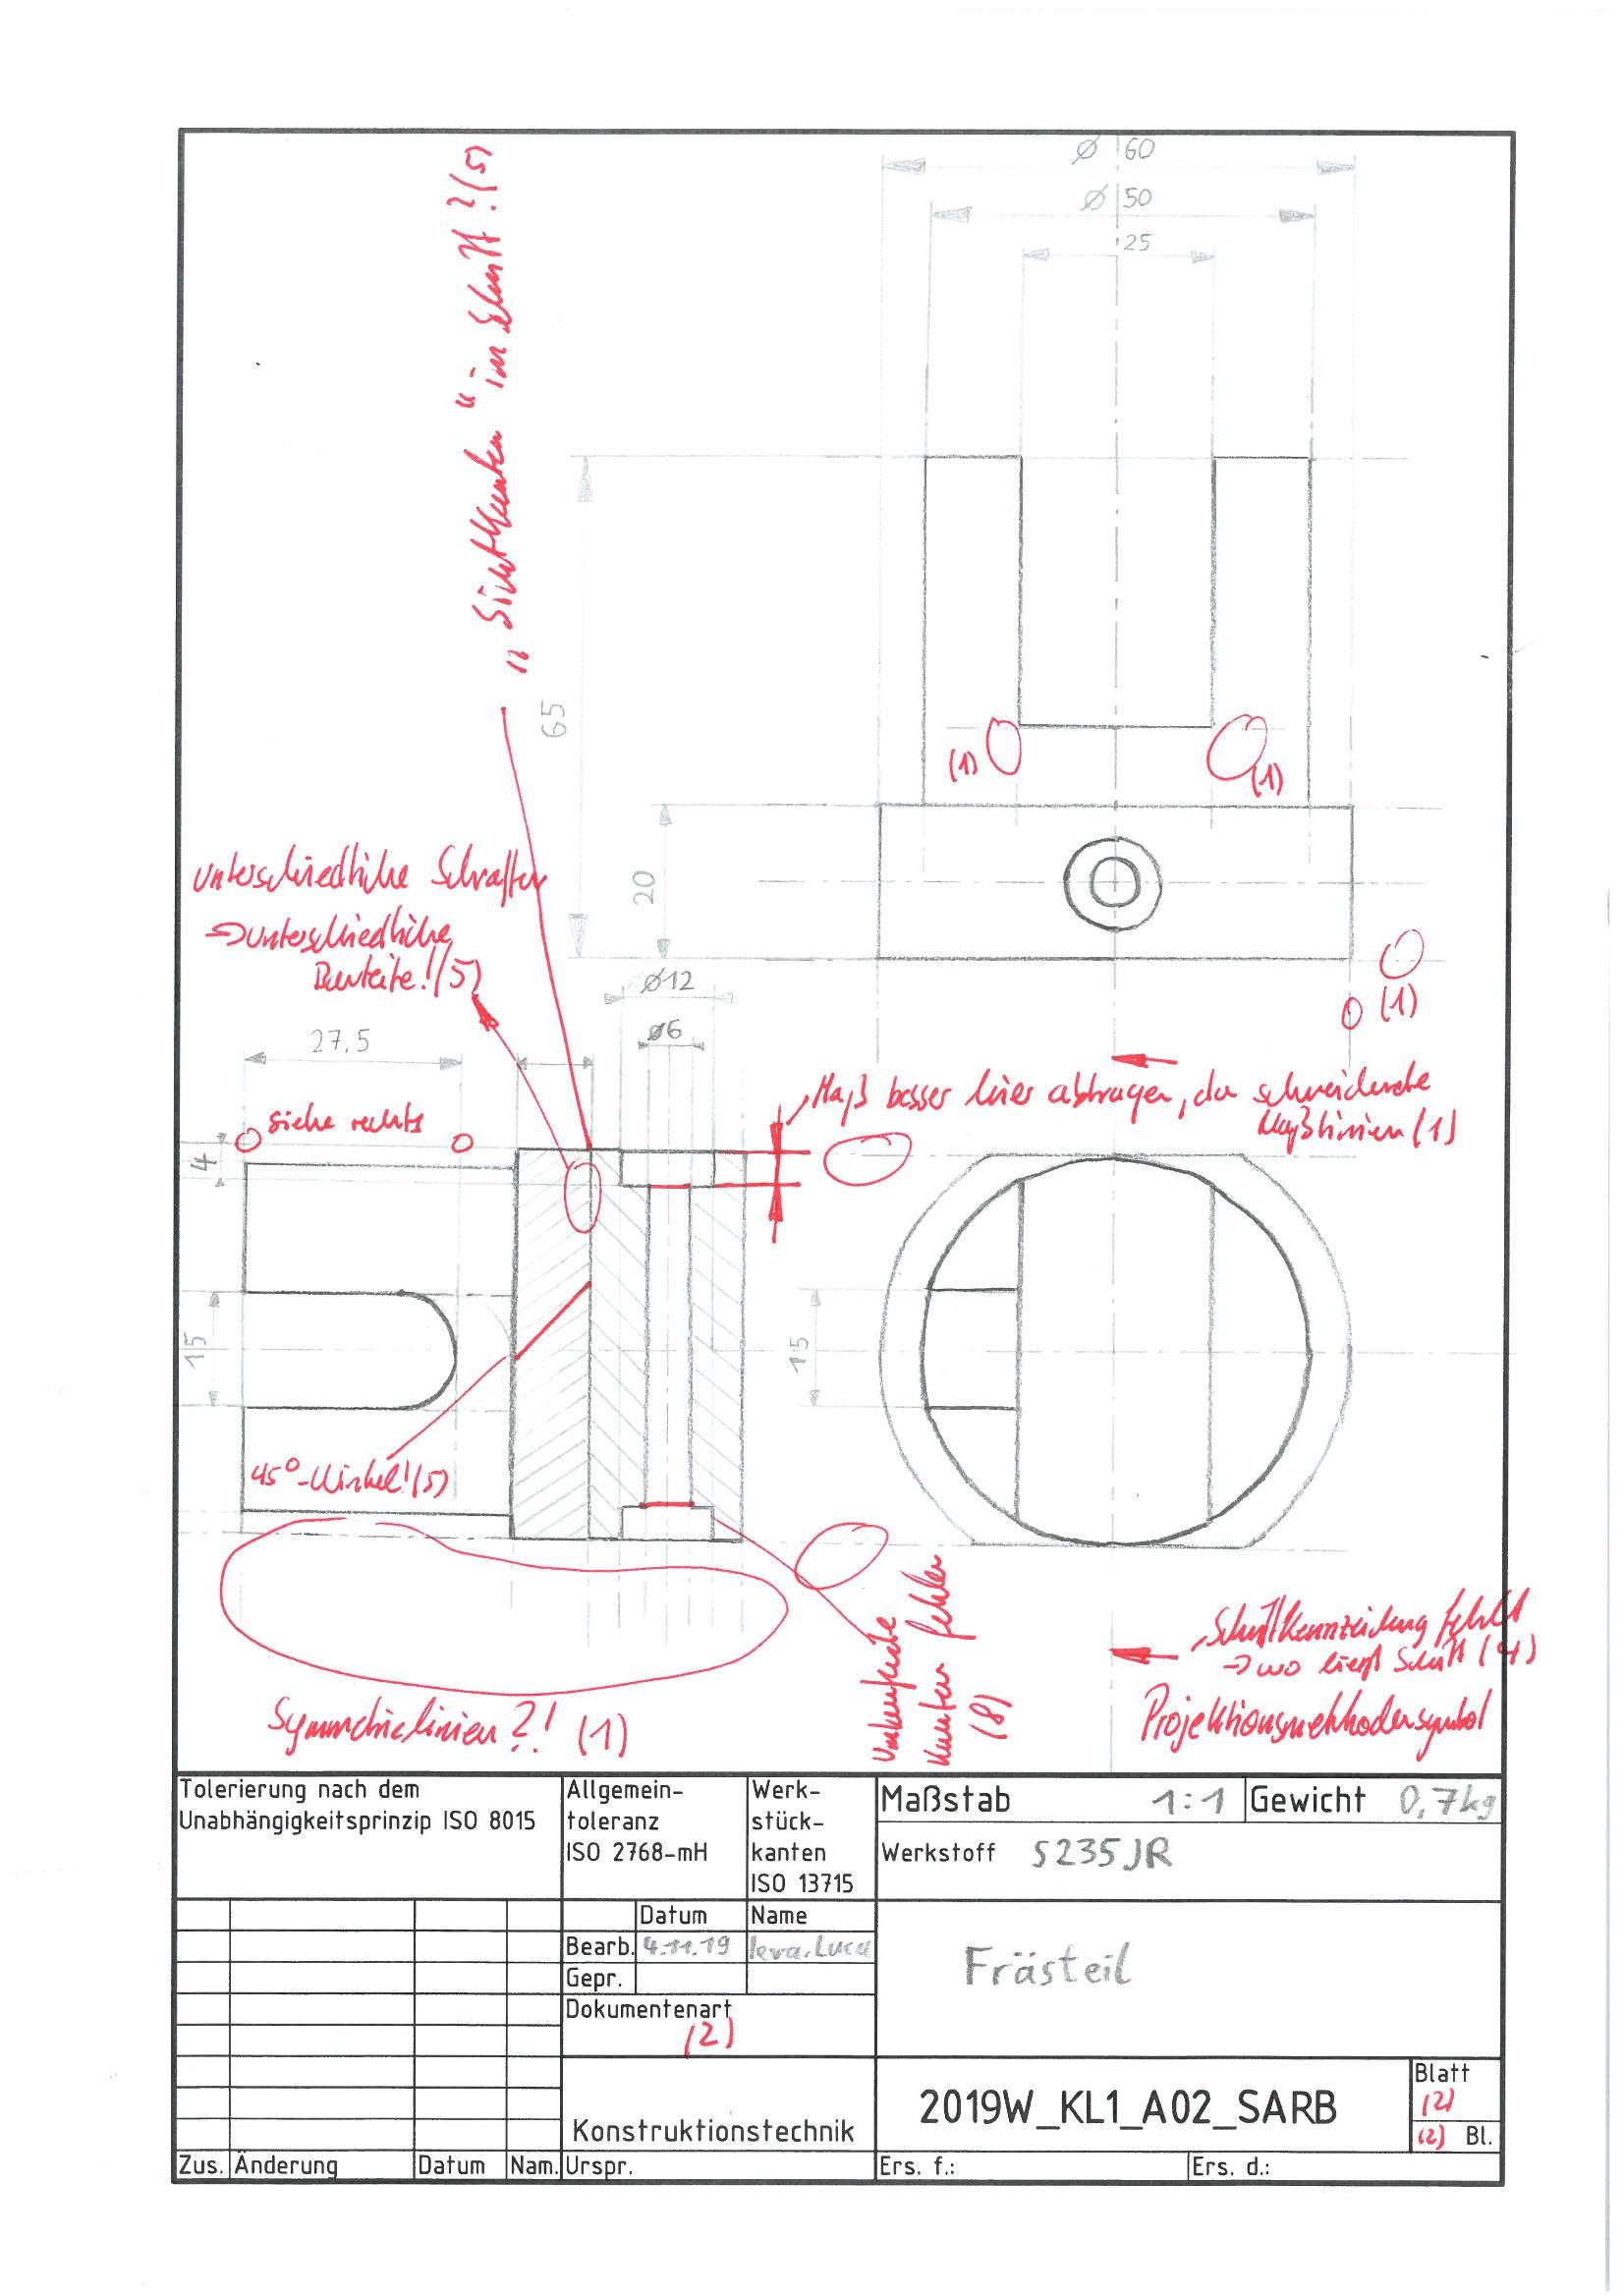 ⌀ 60
⌀ 50
25
„Sichtkanten“ im Schnitt?(5)
65
20
unterschiedliche Schraffur
→unterschiedliche
Bauteile!(5)
(1)
(1)
(1)
⌀12
⌀6
27,5
siehe rechts
Maß besser hier abtragen, da schneidende
Maßlinien (1)
4
15
15
45°-Winkel!(5)
Symmetrielinien?! (1)
Umlaufende
Kanten fehlen
(8)
Schnittkennzeichnung fehlt
→wo liegt Schnitt (4)
Projektionsmethodensymbol
Tolerierung nach dem
Unabhängigkeitsprinzip ISO 8015
Allgemein-
toleranz
ISO 2768-mH
Werk-
stück-
kanten
ISO 13715
Maßstab 1:1
Gewicht 0,7kg
Werkstoff S235JR
Datum Name
Bearb. 4.11.19 Luca
Gepr.
Dokumentenart
(2)
Frästeil
Konstruktionstechnik
2019W_KL1_A02_SARB
Blatt
(2)
(2) Bl.
Zus. Änderung Datum Nam. Urspr. Ers. f.: Ers. d.: